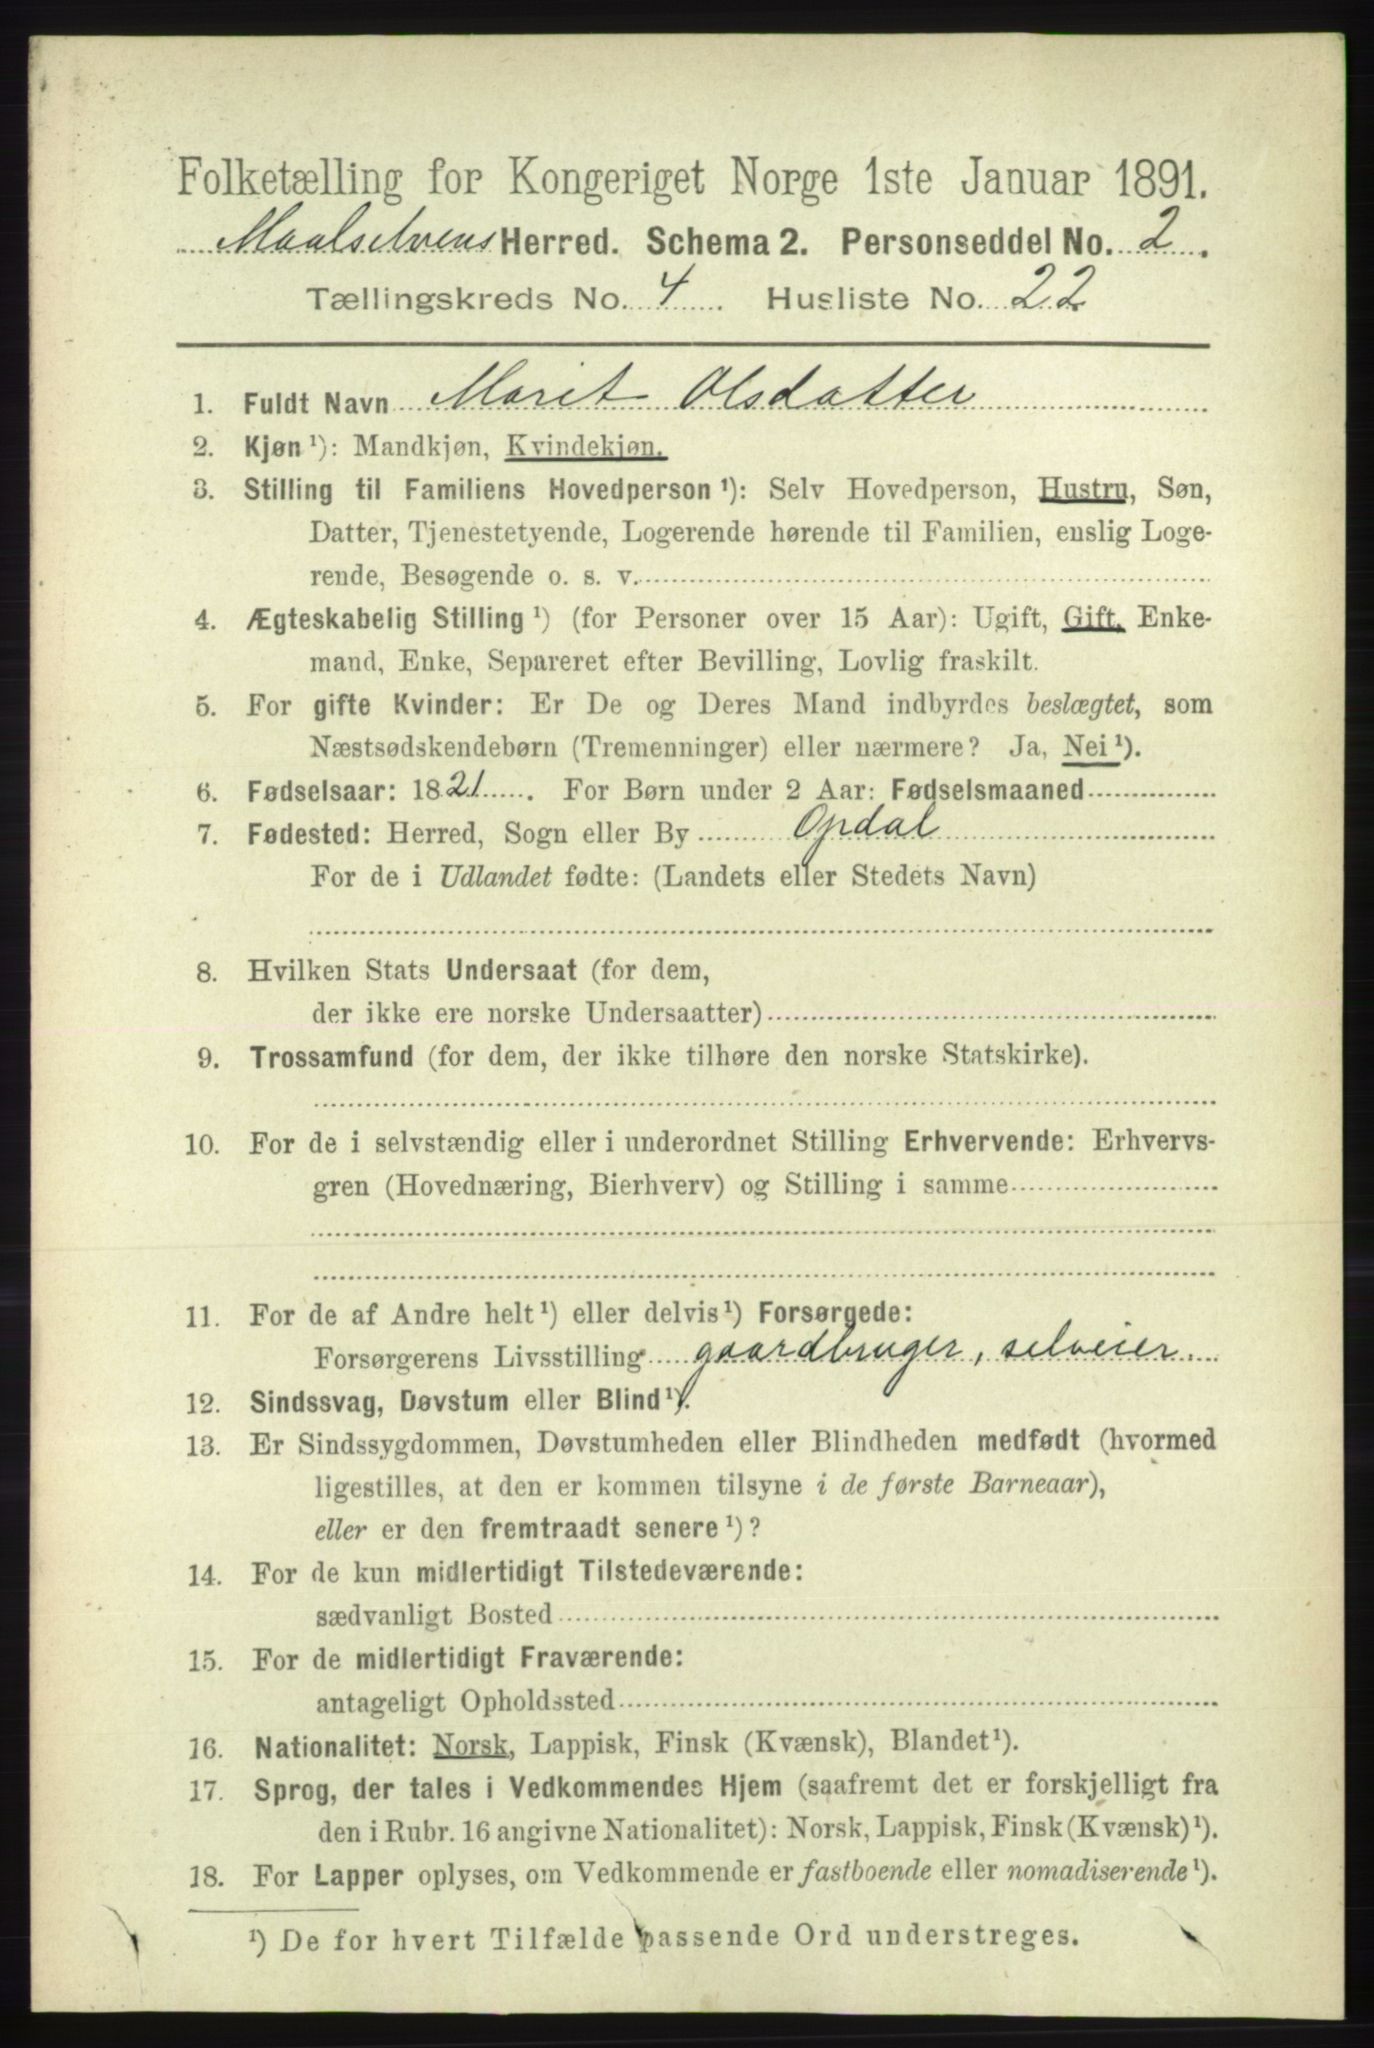 Folketælling for Kongeriget Norge 1ste Januar 1891.
Maalselvens Herred. Schema 2. Personseddel No. 2.
Tællingskreds No. 4 Husliste No. 22
1. Fuldt Navn Marit Olsdatter
2. Kjøn ¹): Mandkjøn, Kvindekjøn.
3. Stilling til Familiens Hovedperson ¹): Selv Hovedperson, Hustru, Søn,
Datter, Tjenestetyende, Logerende hørende til Familien, enslig Loge-
rende, Besøgende o. s. v.
4. Ægteskabelig Stilling ¹) (for Personer over 15 Aar): Ugift, Gift, Enke-
mand, Enke, Separeret efter Bevilling, Lovlig fraskilt.
5. For gifte Kvinder: Er De og Deres Mand indbyrdes beslægtet, som
Næstsødskendebørn (Tremenninger) eller nærmere? Ja, Nei ¹).
6. Fødselsaar: 1821. For Børn under 2 Aar: Fødselsmaaned
7. Fødested: Herred, Sogn eller By Opdal
For de i Udlandet fødte: (Landets eller Stedets Navn)
8. Hvilken Stats Undersaat (for dem,
der ikke ere norske Undersaatter)
9. Trossamfund (for dem, der ikke tilhøre den norske Statskirke).
10. For de i selvstændig eller i underordnet Stilling Erhvervende: Erhvervs-
gren (Hovednæring, Bierhverv) og Stilling i samme
11. For de af Andre helt ¹) eller delvis ¹) Forsørgede:
Forsørgerens Livsstilling gaardbruger, selveier.
12. Sindssvag, Døvstum eller Blind ¹).
13. Er Sindssygdommen, Døvstumheden eller Blindheden medfødt (hvormed
ligestilles, at den er kommen tilsyne i de første Barneaar),
eller er den fremtraadt senere ¹)?
14. For de kun midlertidigt Tilstedeværende:
sædvanligt Bosted
15. For de midlertidigt Fraværende:
antageligt Opholdssted
16. Nationalitet: Norsk, Lappisk, Finsk (Kvænsk), Blandet ¹).
17. Sprog, der tales i Vedkommendes Hjem (saafremt det er forskjelligt fra
den i Rubr. 16 angivne Nationalitet): Norsk, Lappisk, Finsk (Kvænsk) ¹).
18. For Lapper oplyses, om Vedkommende er fastboende eller nomadiserende ¹).
¹) De for hvert Tilfælde passende Ord understreges.